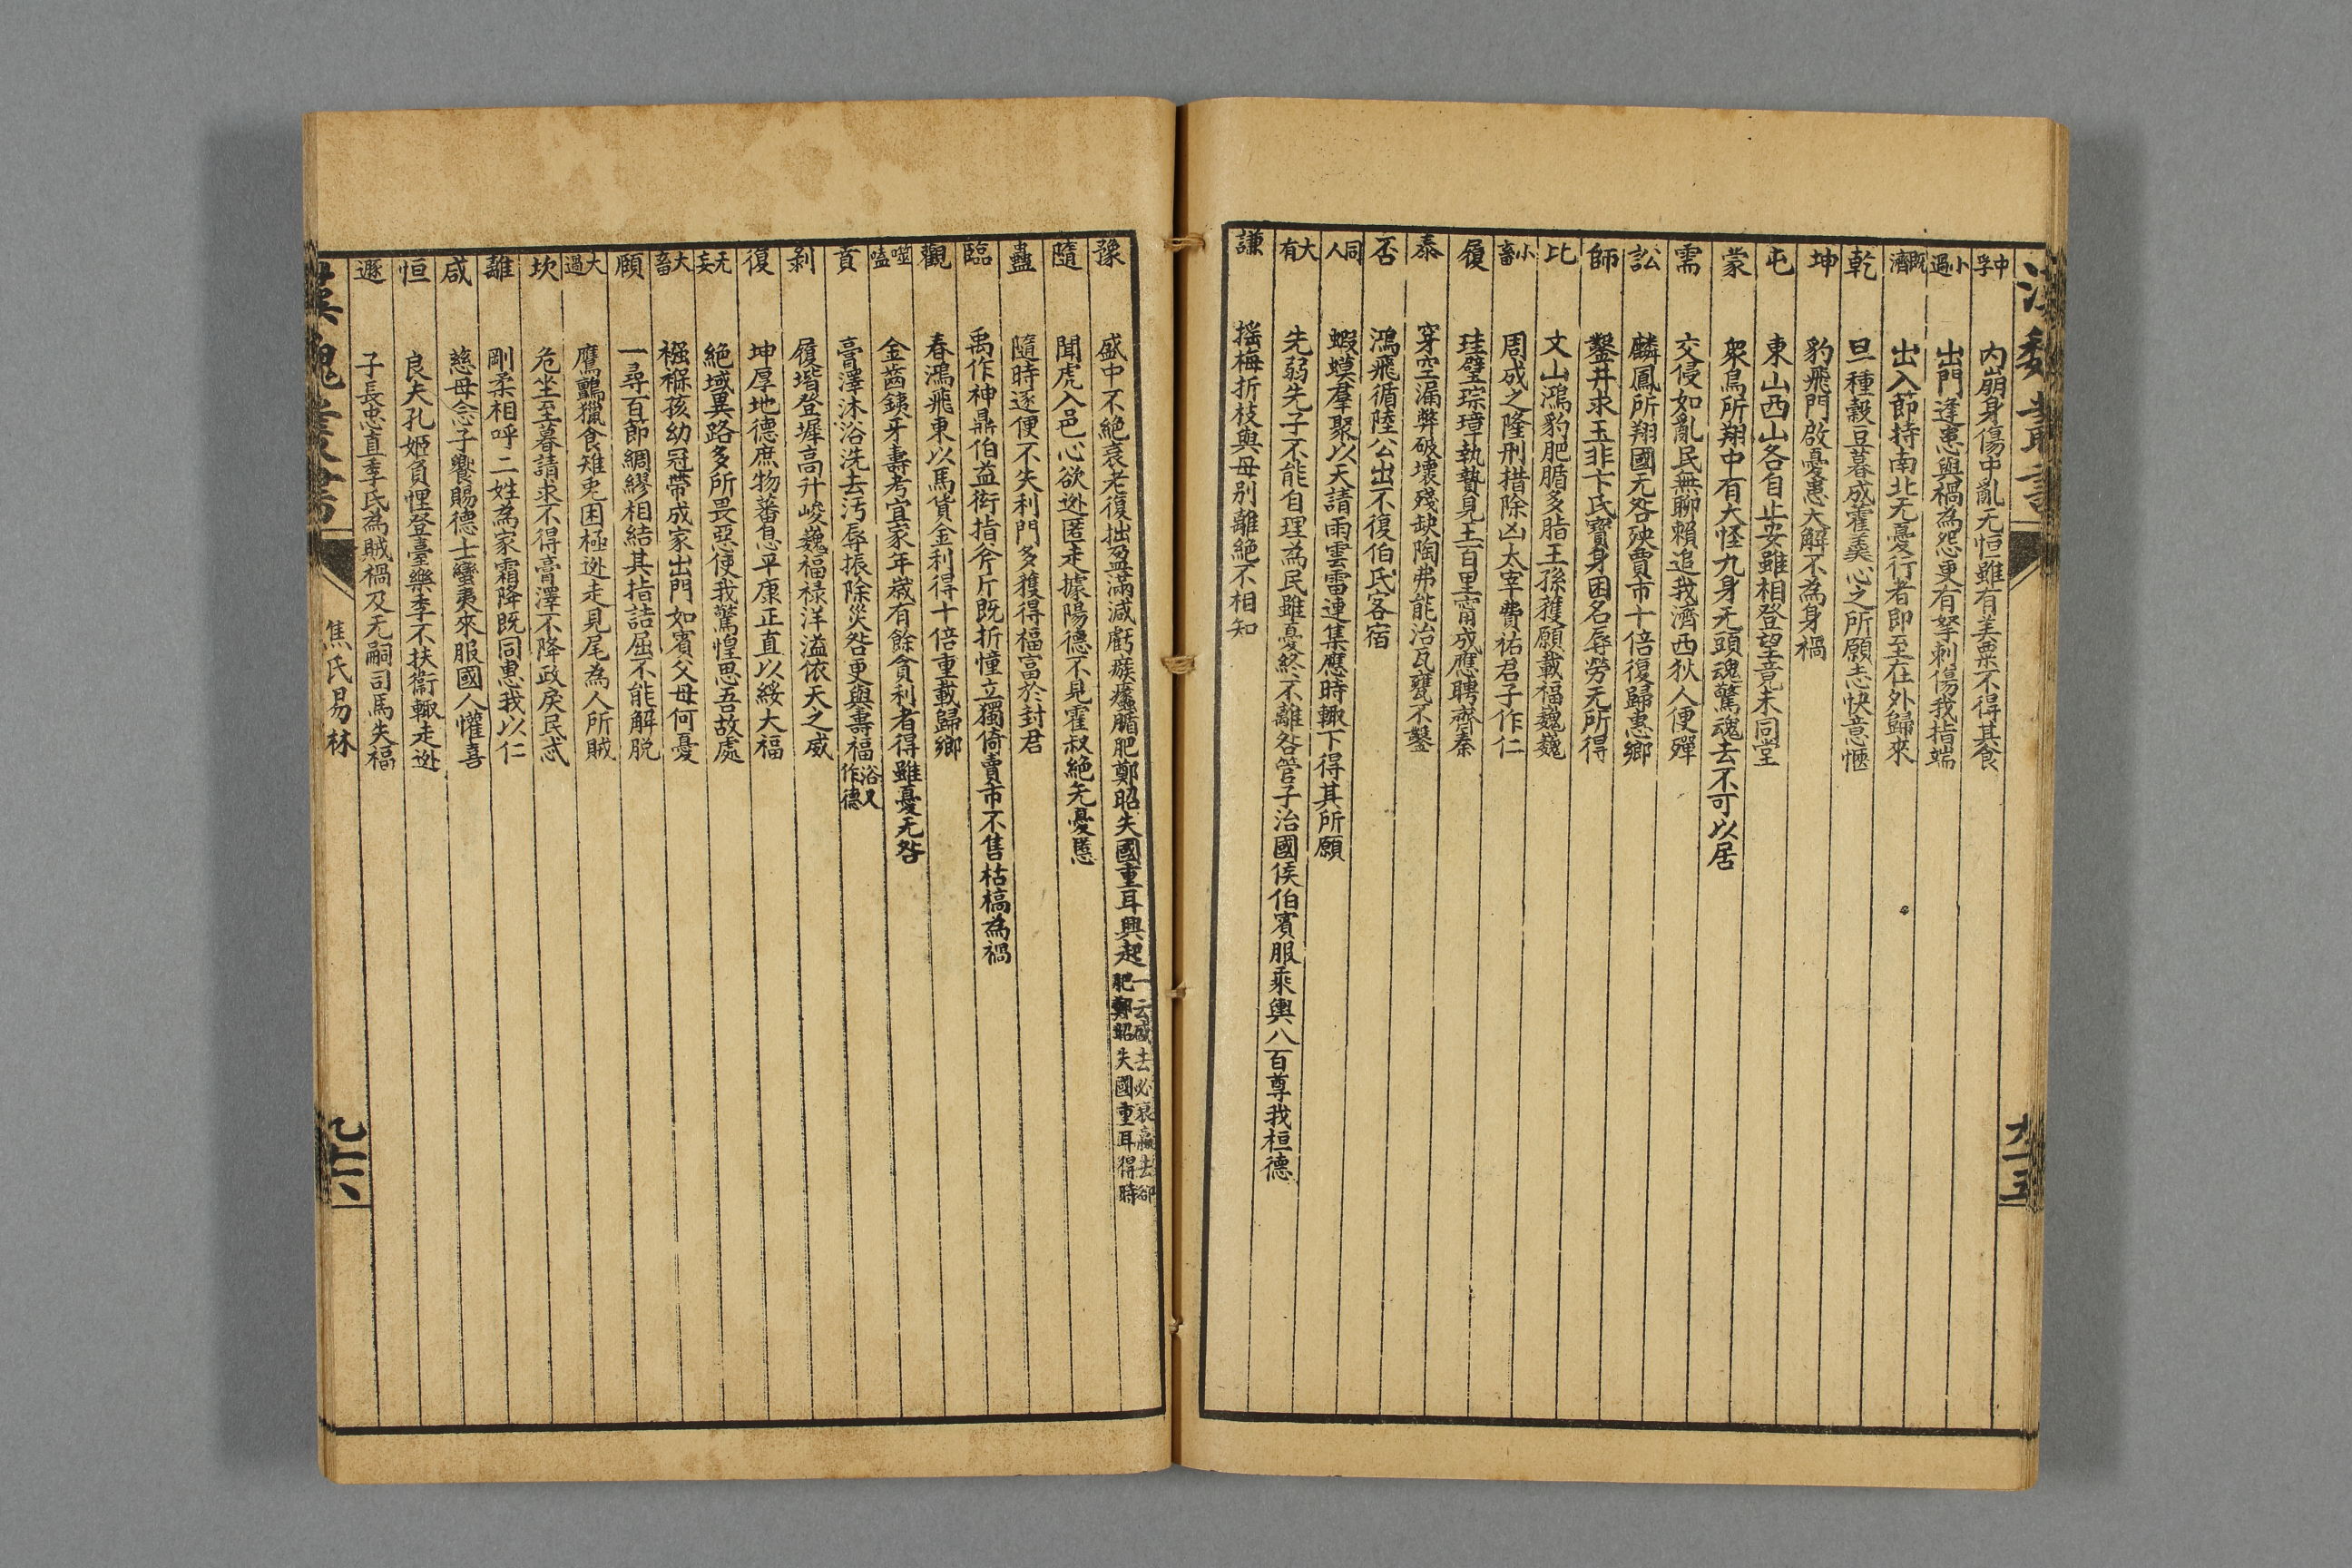 中孚 内崩身傷中亂无恒雖有美粟不得其食
小過 出門逢患與禍為怨更有拏刺傷我指端
既濟 出入節持南北无憂行者即至在外歸來
乾 旦種穀豆暮成藿羹心之所願志快意愜
坤 豹飛門啟憂患大解不為身禍
屯 東山西山各自止安雖相登望竟未同堂
蒙 眾鳥所翔中有大怪九身无頭魂驚魂去不可以居
需 交侵如亂民無聊賴追我濟西狄人便殫
訟 麟鳳所翔國无咎殃賈市十倍復歸惠鄉
師 鑿井求玉非卞氏寶身困名辱勞无所得
比 文山鴻豹肥腯多脂王孫獲願載福巍巍
小畜 周成之隆刑措除凶太宰費祐君子作仁
履 珪璧琮璋執贄見王百里甯戚應聘齊秦
泰 穿空漏弊破壞殘缺陶弗能治瓦甕不鑿
否 鴻飛循陸公出不復伯氏客宿
同人 蝦蟆羣聚以天請雨雲雷連集應時輙下得其所願
大有 先弱先子不能自理為民雖憂終不離咎管子治國侯伯賓服乘輿八百尊我桓德
謙 揺梅折枝與母别離絶不相知
豫 盛中不絶衰老復拙盈滿減虧瘯癧腯肥鄭昭失國重耳興起 一云盛去必衰羸去卻肥鄭昭失國重耳得時
隨 聞虎入邑心欲逊匿走據陽德不見霍叔絶无憂慝
蠱 隨時逐便不失利門多獲得福富於封君
臨 禹作神鼎伯益銜指斧斤既折憧立獨倚賣市不售枯槁為禍
觀 春鴻飛東以馬貨金利得十倍重載歸鄉
噬嗑 金齒鐵牙壽考宜家年歲有餘貪利者得雖憂无咎
賁 膏澤沐浴洗去污辱振除災咎更與壽福 浴又作德
剥 履堦登墀高升峻巍福禄洋溢依天之威
復 坤厚地德庶物蕃息平康正直以綏大福
无妄 絶域異路多所畏惡使我驚惶思吾故處
大畜 襁褓孩幼冠帶成家出門如賓父母何憂
頤 一尋百節綢繆相結其指詰屈不能解脱
大過 鷹鸇獵食雉兎困極逊走見尾為人所賊
坎 危坐至暮請求不得膏澤不降政戾民忒
離 剛柔相呼二姓為家霜降既同惠我以仁
咸 慈母念子饗賜德士蠻夷來服國人懽喜
恒 良夫孔姬負悝登臺樂季不扶衞輙走逊
遯 子長忠直季氏為賊禍及无嗣司馬失福
焦氏易林